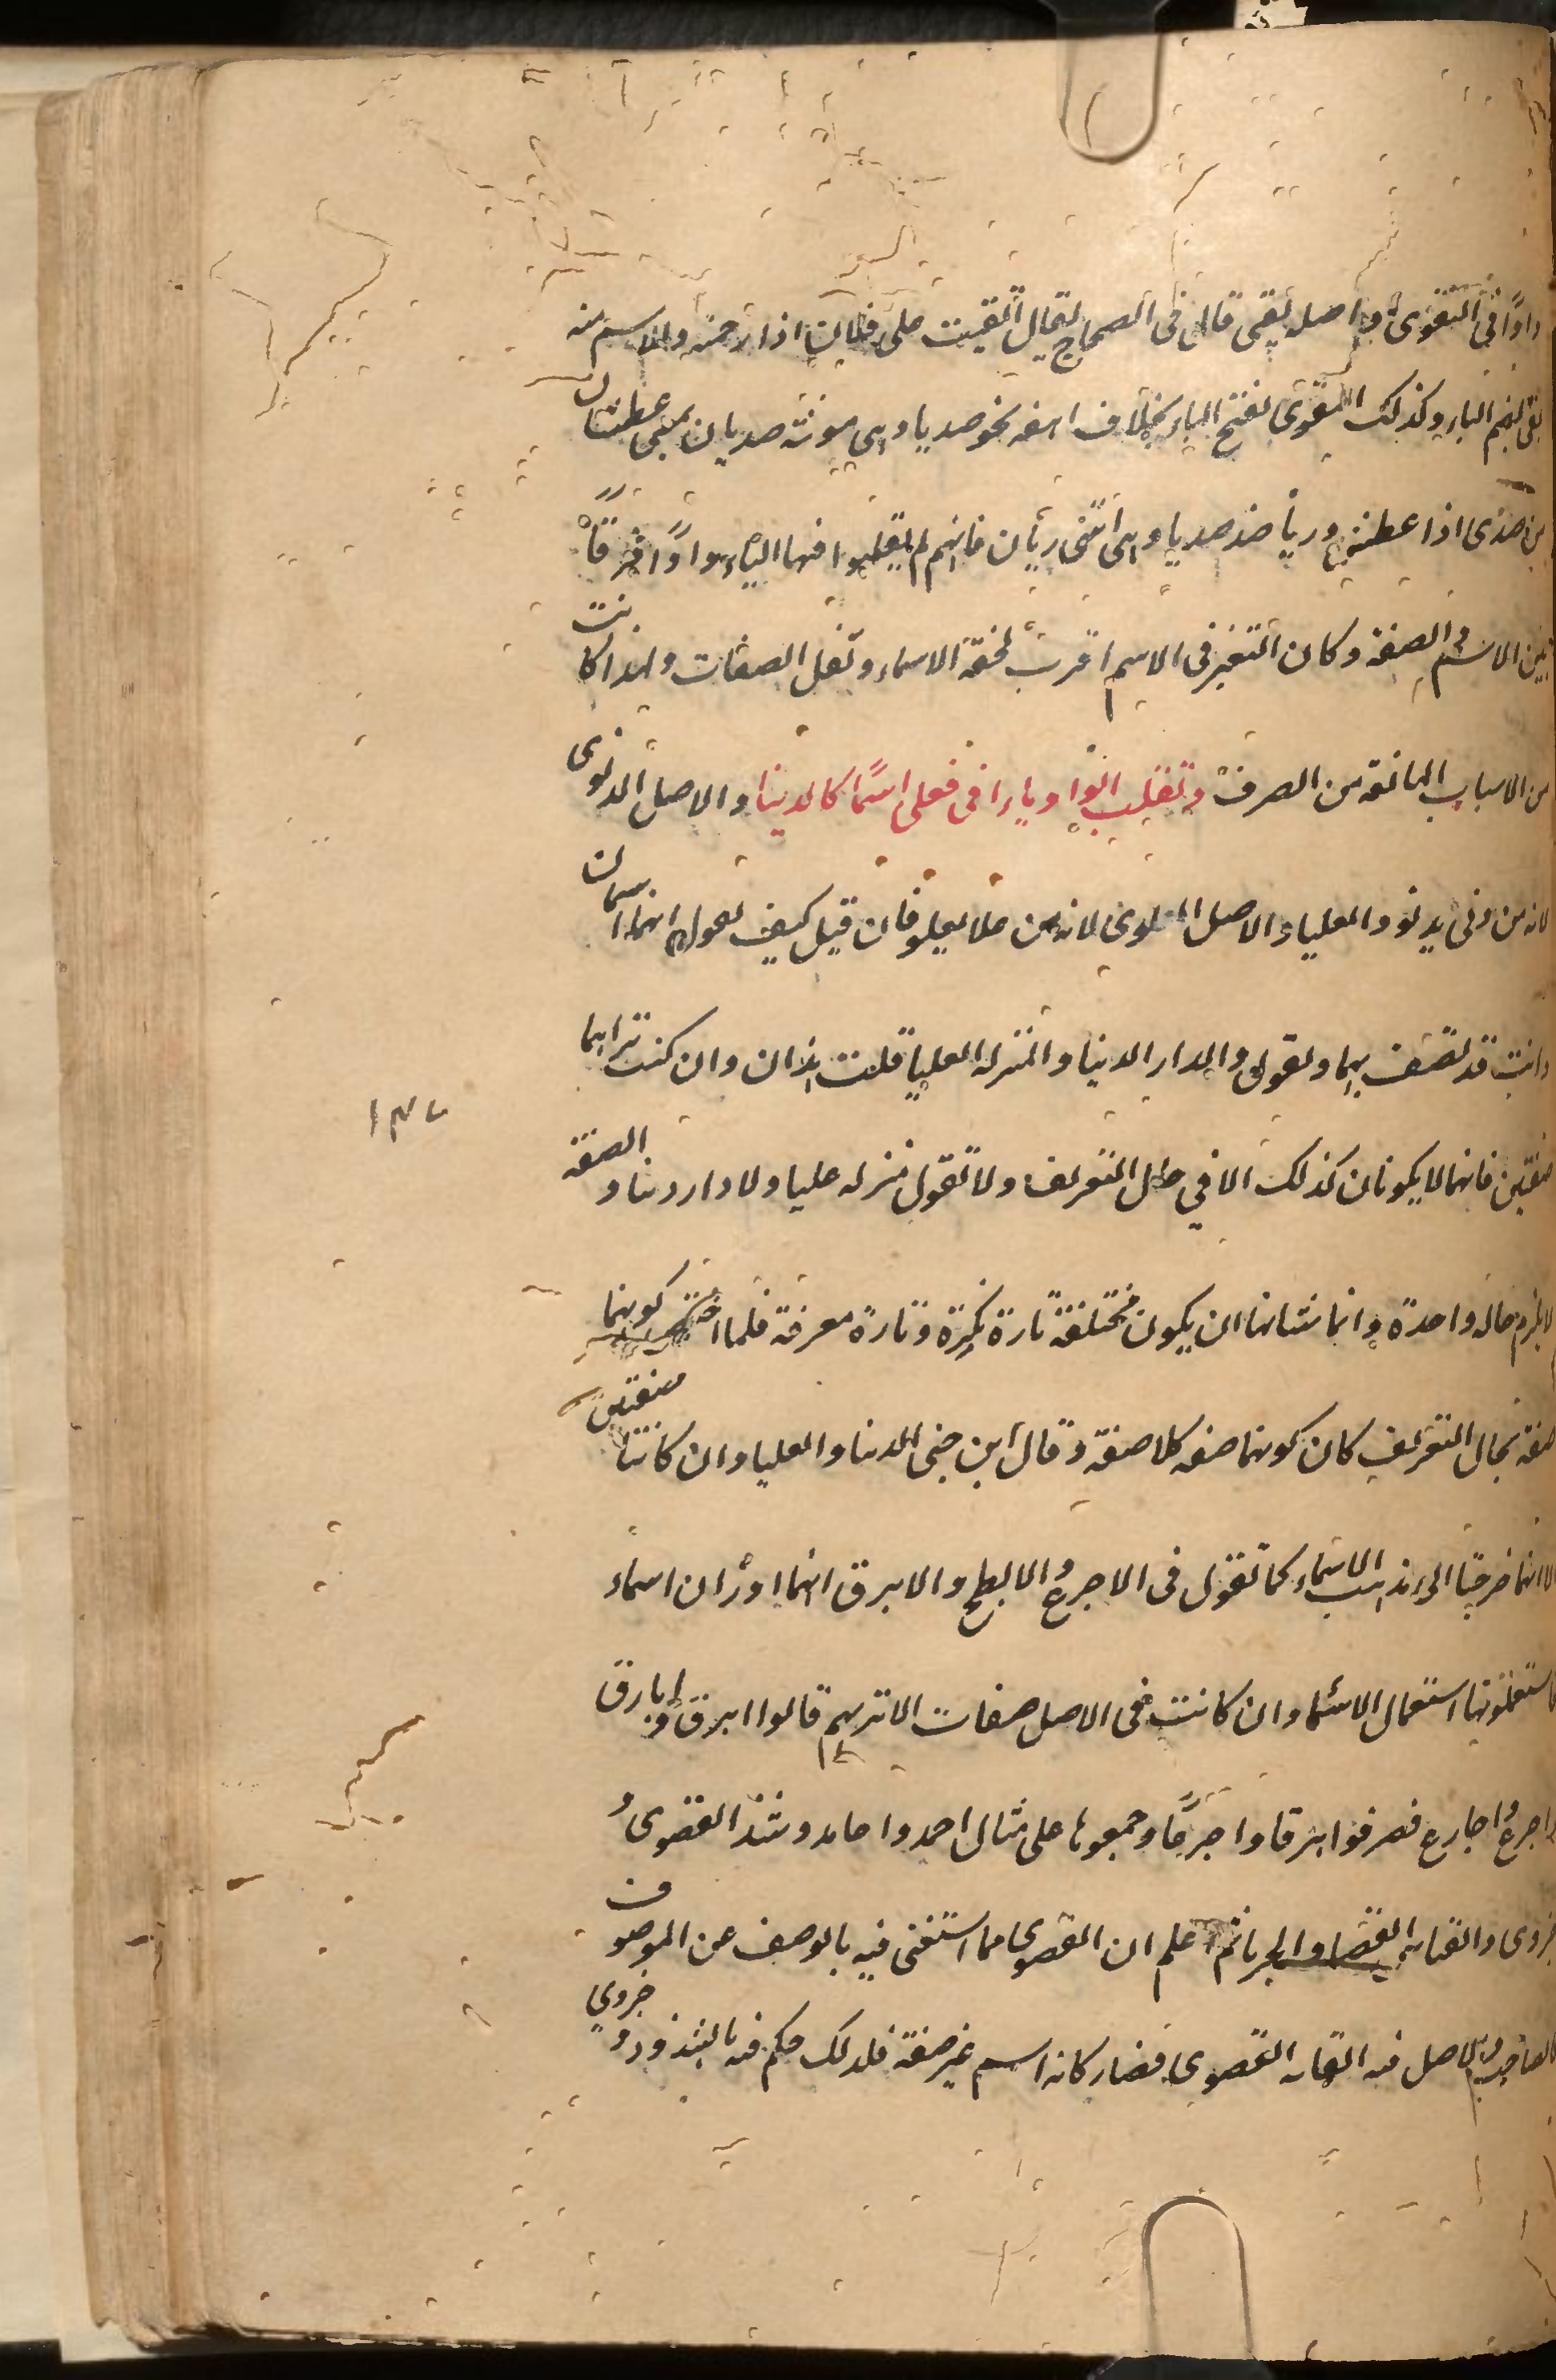 واوًا في التقوى واصله تقى قال في الصحاح يقال اتقيت على فلان اذا رحمته والاسم منه
بقى بضم الباء وكذلك البقوى بفتح الباء بخلاف الصفة نحو صديا وهى مونثه صديان بمعنى عطشان
من صدى اذا عطش وريا ضد صديا وهى انثى ريان فانهم لم يقلبوا فيها الياء واوًا فرقًا
بين الاسم والصفة وكان التغير في الاسم اقرب لخفة الاسماء وثقل الصفات ولهذا كانت
من الاسباب المانعة من الصرف وتقلب الواو ياءا في فعلى اسمًا كالدنيا والاصل الدنوى
لانه من دنى يدنو والعلياء الاصل العلوى لانه من علا يعلو فان قيل كيف تقول انهما اسمان
وانت قد تصف بهما وتقول الدار الدنيا والمنزلة العليا قلت هذان وان كنت تراهما
صفتين فانهما لا يكونان كذلك الا في حال التعريف ولا تقول منزله عليا ولا دار دنيا والصفة
لا يلزم حاله واحدة وانما شانها ان يكون مختلفة تارة نكرة وتارة معرفة فلما كونهما
صفة بحال التعريف كان كونهما صفه كلا صفة وقال ابن جنى الدنيا والعليا وان كانتا صفتين
الا انهما خرجتا الى مذهب الاسماء كما تقول في الاجرع والابطح والابرق انهما اوزان اسماء
استعملوتها استعمال الاسماء وان كانت في الاصل صفات الا تريهم قالوا ابرق وابارق
واجرع واجارع فصرفوا ابرقا واجرعًا وجمعوها على مثال احمد واحامد وشذ القصوى و
خزوى والقياس القصيا والخزيا ثم اعلم ان القصوى مما استغنى فيه بالوصف عن الموصوف
كالصاحب والاصل فيه الغايه القصوى فصار كانه اسم غير صفة فلذلك حكم فيه بالشذوذ وخزوى